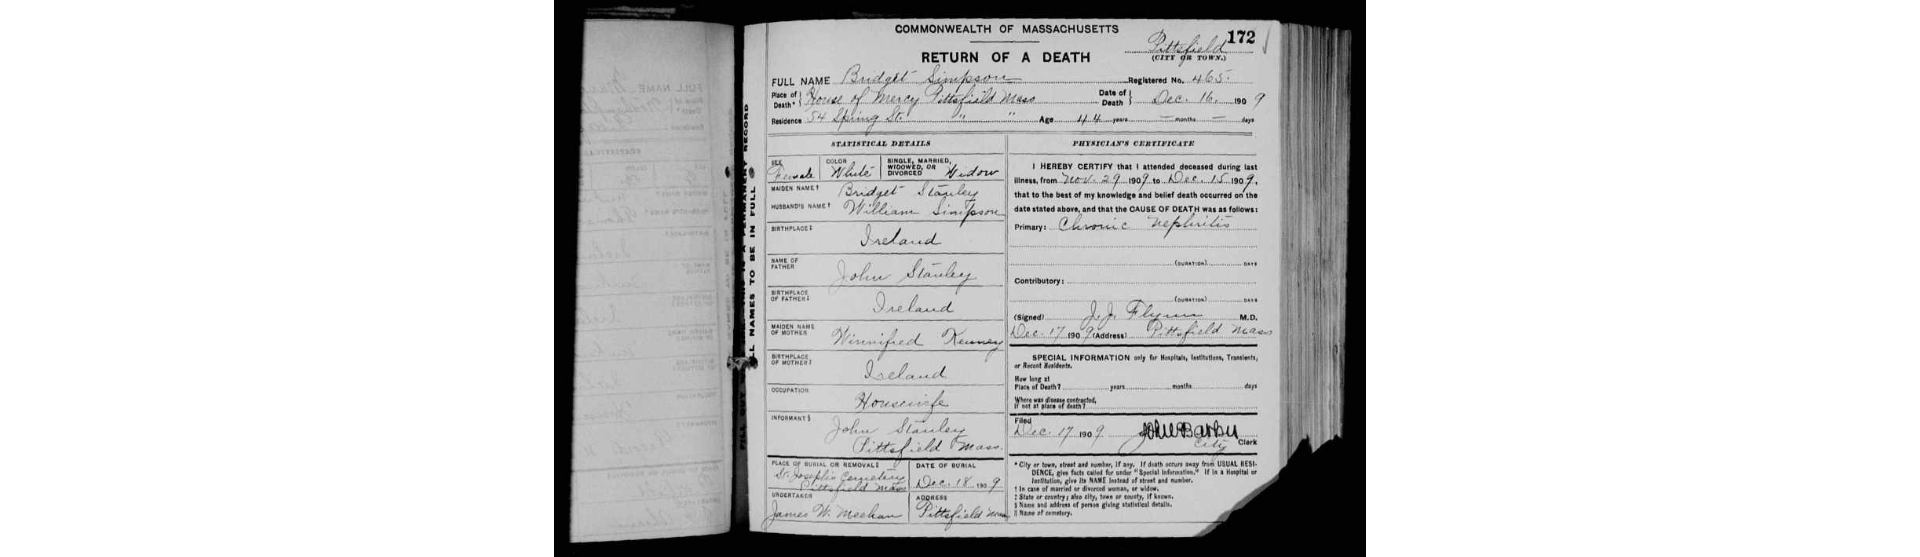 COMMONWEALTH OF MASSACHUSETTS
172
RETURN OF A DEATH
Pittsfield
(CITY OR TOWN.)
FULL NAME Bridget Simpson Registered No. 465.
Place of Death* House of Mercy Pittsfield Mass Date of Death Dec. 16, 1909
Residence 54 Spring St. " " Age 44 years — months — days
STATISTICAL DETAILS
SEX Female COLOR White SINGLE, MARRIED, WIDOWED, OR DIVORCED Widow
MAIDEN NAME† Bridget Stanley
HUSBAND'S NAME† William Simpson
BIRTHPLACE‡ Ireland
NAME OF FATHER John Stanley
BIRTHPLACE OF FATHER‡ Ireland
MAIDEN NAME OF MOTHER Winnifred Kenney
BIRTHPLACE OF MOTHER‡ Ireland
OCCUPATION Housewife
INFORMANT§ John Stanley
Pittsfield Mass.
PLACE OF BURIAL OR REMOVAL‖ St. Joseph's Cemetery
Pittsfield Mass
DATE OF BURIAL Dec. 18, 1909
UNDERTAKER James W. Meehan
ADDRESS Pittsfield Mass
PHYSICIAN'S CERTIFICATE
I HEREBY CERTIFY that I attended deceased during last
illness, from Nov. 29 1909 to Dec. 15 1909,
that to the best of my knowledge and belief death occurred on the
date stated above, and that the CAUSE OF DEATH was as follows:
Primary: Chronic Nephritis
(DURATION) DAYS
Contributory:
(DURATION) DAYS
(Signed) J. J. Flynn M.D.
Dec. 17 1909 (Address) Pittsfield Mass
SPECIAL INFORMATION only for Hospitals, Institutions, Transients,
or Recent Residents.
How long at
Place of Death? years months days
Where was disease contracted,
If not at place of death?
Filed
Dec. 17 1909
City Clerk
* City or town, street and number, if any. If death occurs away from USUAL RESI-
DENCE, give facts called for under "Special Information." If in a Hospital or
Institution, give its NAME instead of street and number.
† In case of married or divorced woman, or widow.
‡ State or country; also city, town or county, if known.
§ Name and address of person giving statistical details.
‖ Name of cemetery.
ALL NAMES TO BE IN FULL
RECORD